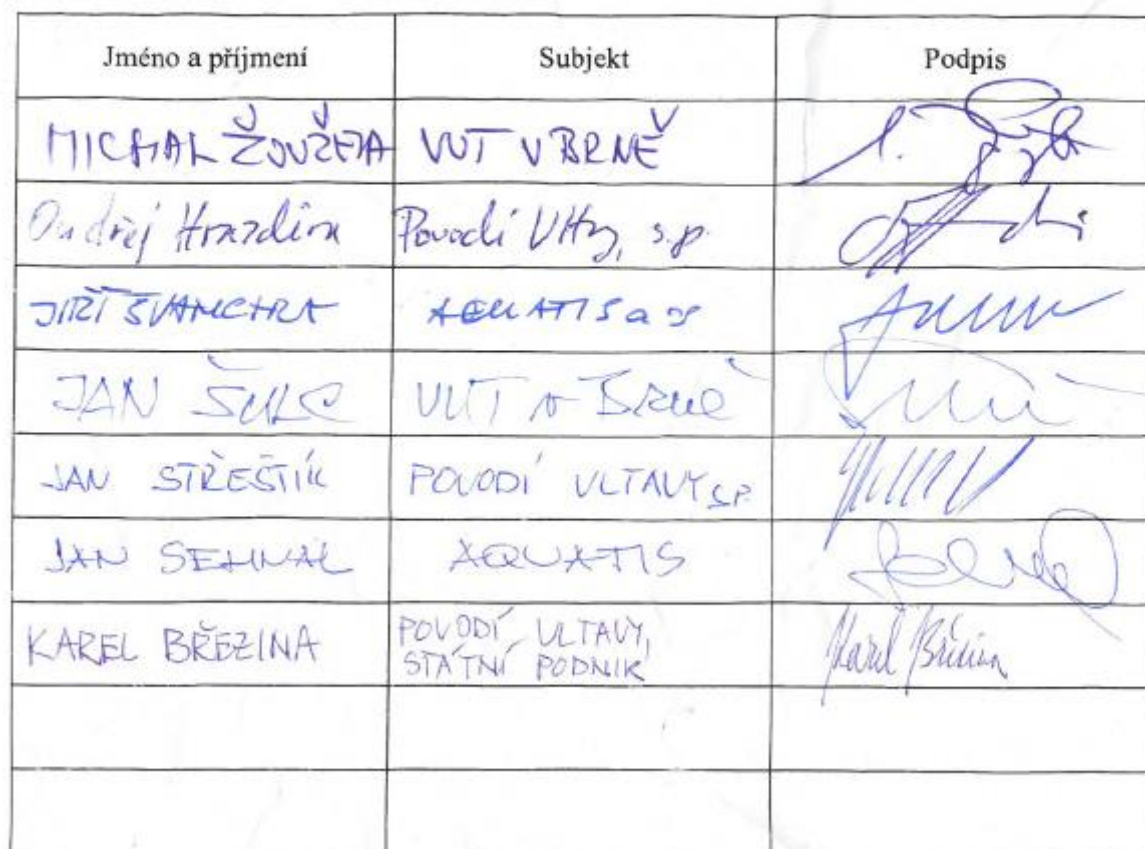 Jméno a příjmení Subjekt Podpis
MICHAL ŽOUŽELA VUT V BRNĚ
Ondřej Hrazdira Povodí Vltavy, s.p.
JIŘÍ ŠVANCARA AQUATIS a.s.
JAN ŠULC VUT v Brně
JAN STŘEŠTÍK POVODÍ VLTAVY S.P.
JAN SEHNAL AQUATIS
KAREL BŘEZINA POVODÍ VLTAVY, Karel Březina
STÁTNÍ PODNIK